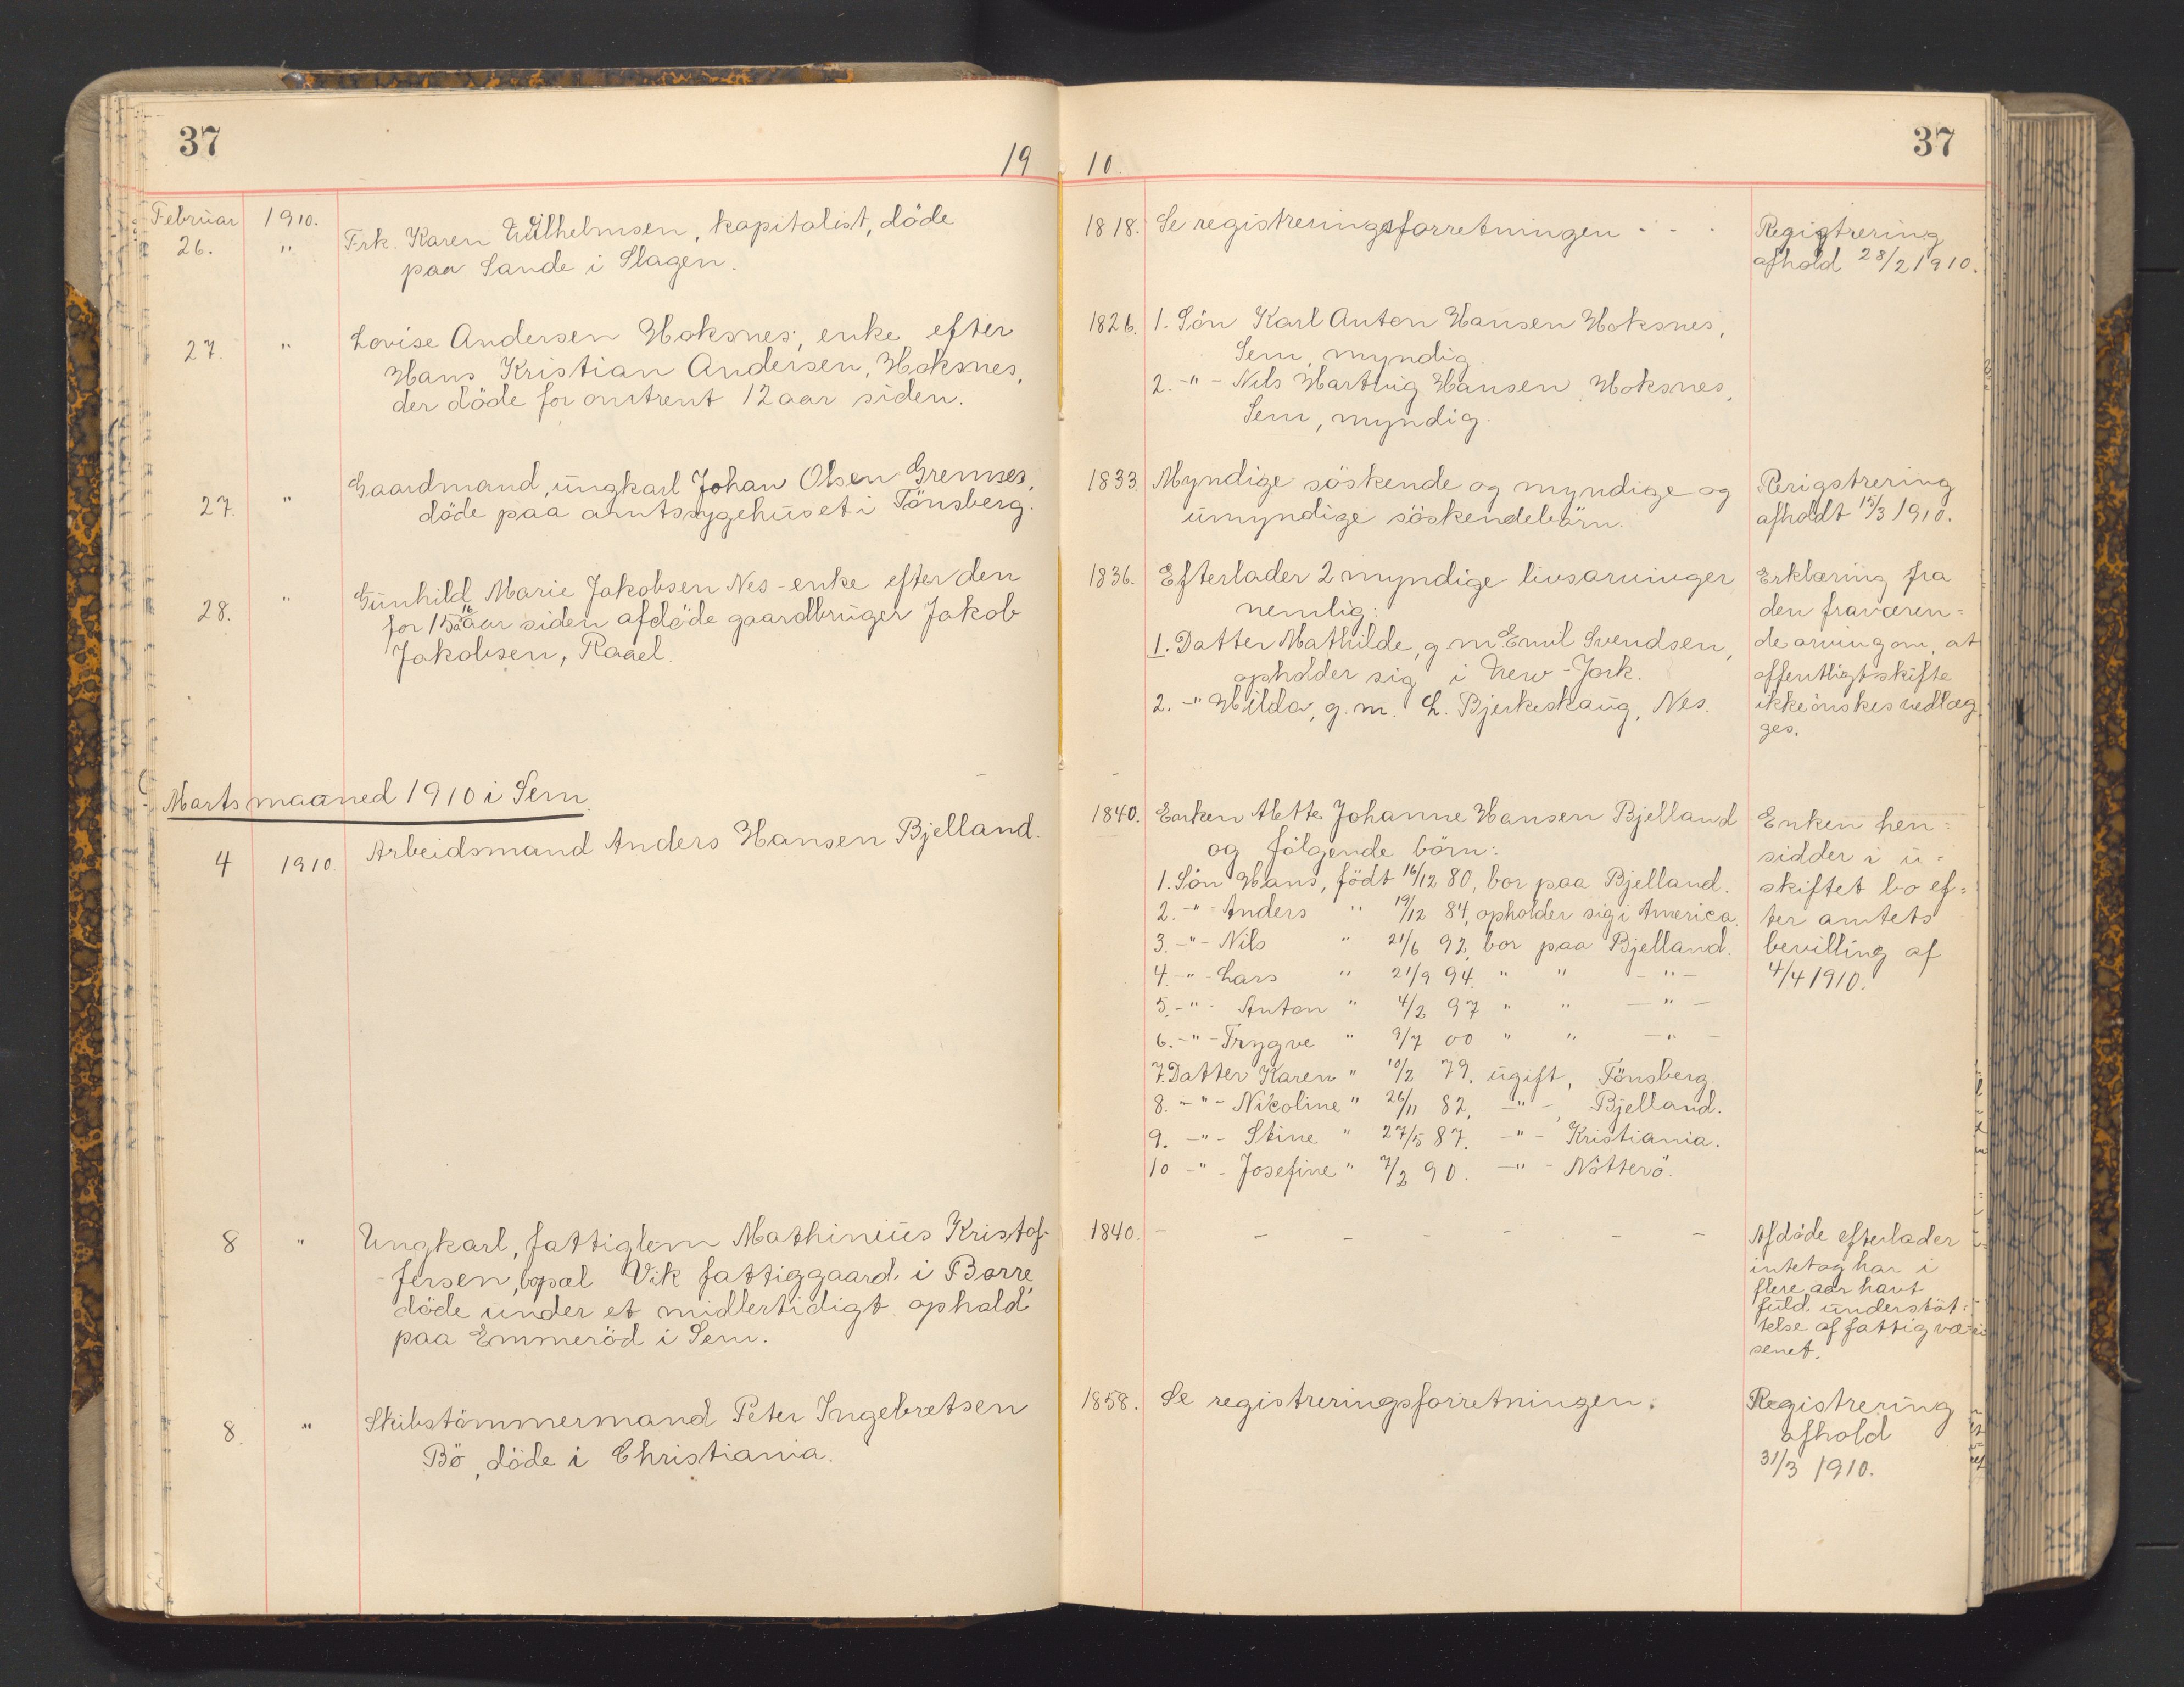 37
19 10.
37
Februar 1910.
26. " Frk. Karen Wilhelmsen, kapitalist, döde
paa Sande i Slagen.
1818. Se registreringsforretningen - - -
Regigtrering
afhold 28/2 1910.
27. " Lovise Andersen Hoksnes, enke efter
Hans Kristian Andersen, Hoksnes,
der döde for omtrent 12 aar siden.
1826. 1. Sön Karl Anton Hansen Hoksnes,
Sem, myndig.
2. -"- Nils Hartvig Hansen Hoksnes,
Sem, myndig.
27. " Gaardmand, ungkarl Johan Olsen Gremnes,
döde paa amtssygehuset i Tönsberg.
1833. Myndige söskende og myndige og
umyndige söskendebörn.
Rerigstrering
afholdt 15/3 1910.
28. " Gunhild Marie Jakobsen Nes - enke efter den
for 15 a 16 aar siden afdöde gaardbruger Jakob
Jakobsen, Raael.
1836. Efterlader 2 myndige livsarvinger
nemlig:
1. Datter Mathilde, g. m. Emil Svendsen,
opholder sig i New-Jork.
2. -"- Hilda, g. m. L. Bjerkeskaug, Nes.
Erklæring fra
den fraværen=
de arving om, at
offentligt skifte
ikke önskes vedlæg
ges.
Marts maaned 1910 i Sem.
4 1910. Arbeidsmand Anders Hansen Bjelland.
1840. Enken Alette Johanne Hansen Bjelland
og fölgende börn:
1. Sön Hans, födt 16/12 80, bor paa Bjelland.
2. -"- Anders " 19/12 84, opholder sig i America.
3. -"- Nils " 21/6 92, bor paa Bjelland.
4. -"- Lars " 21/9 94. " " -"-
5. -"- Anton " 4/2 97 " " -"-
6. -"- Trygve " 9/7 00 " " -"-
7. Datter Karen " 10/2 79. ugift, Tönsberg.
8. -"- Nikoline " 26/11 82, -"-, Bjelland.
9. -"- Stine " 27/5 87. -"- Kristiania.
10 -"- Josefine " 7/2 90. -"- Nötterö.
Enken hen=
sidder i u=
skiftet bo ef=
ter amtets
bevilling af
4/4 1910.
8 " Ungkarl, fattiglem Mathinius Kristof-
fersen, bopæl Vik fattiggaard i Borre,
döde under et midlertidigt ophold
paa Emmeröd i Sem.
1840. - - - - - - -
Afdöde efterlader
intet og har i
flere aar havt
fuld understöt=
telse af fattigvæ-
senet.
8. " Skibstömmermand Peter Ingebretsen
Bö, döde i Christiania.
1858. Se registreringsforretningen.
Registrering
afhold
31/3 1910.